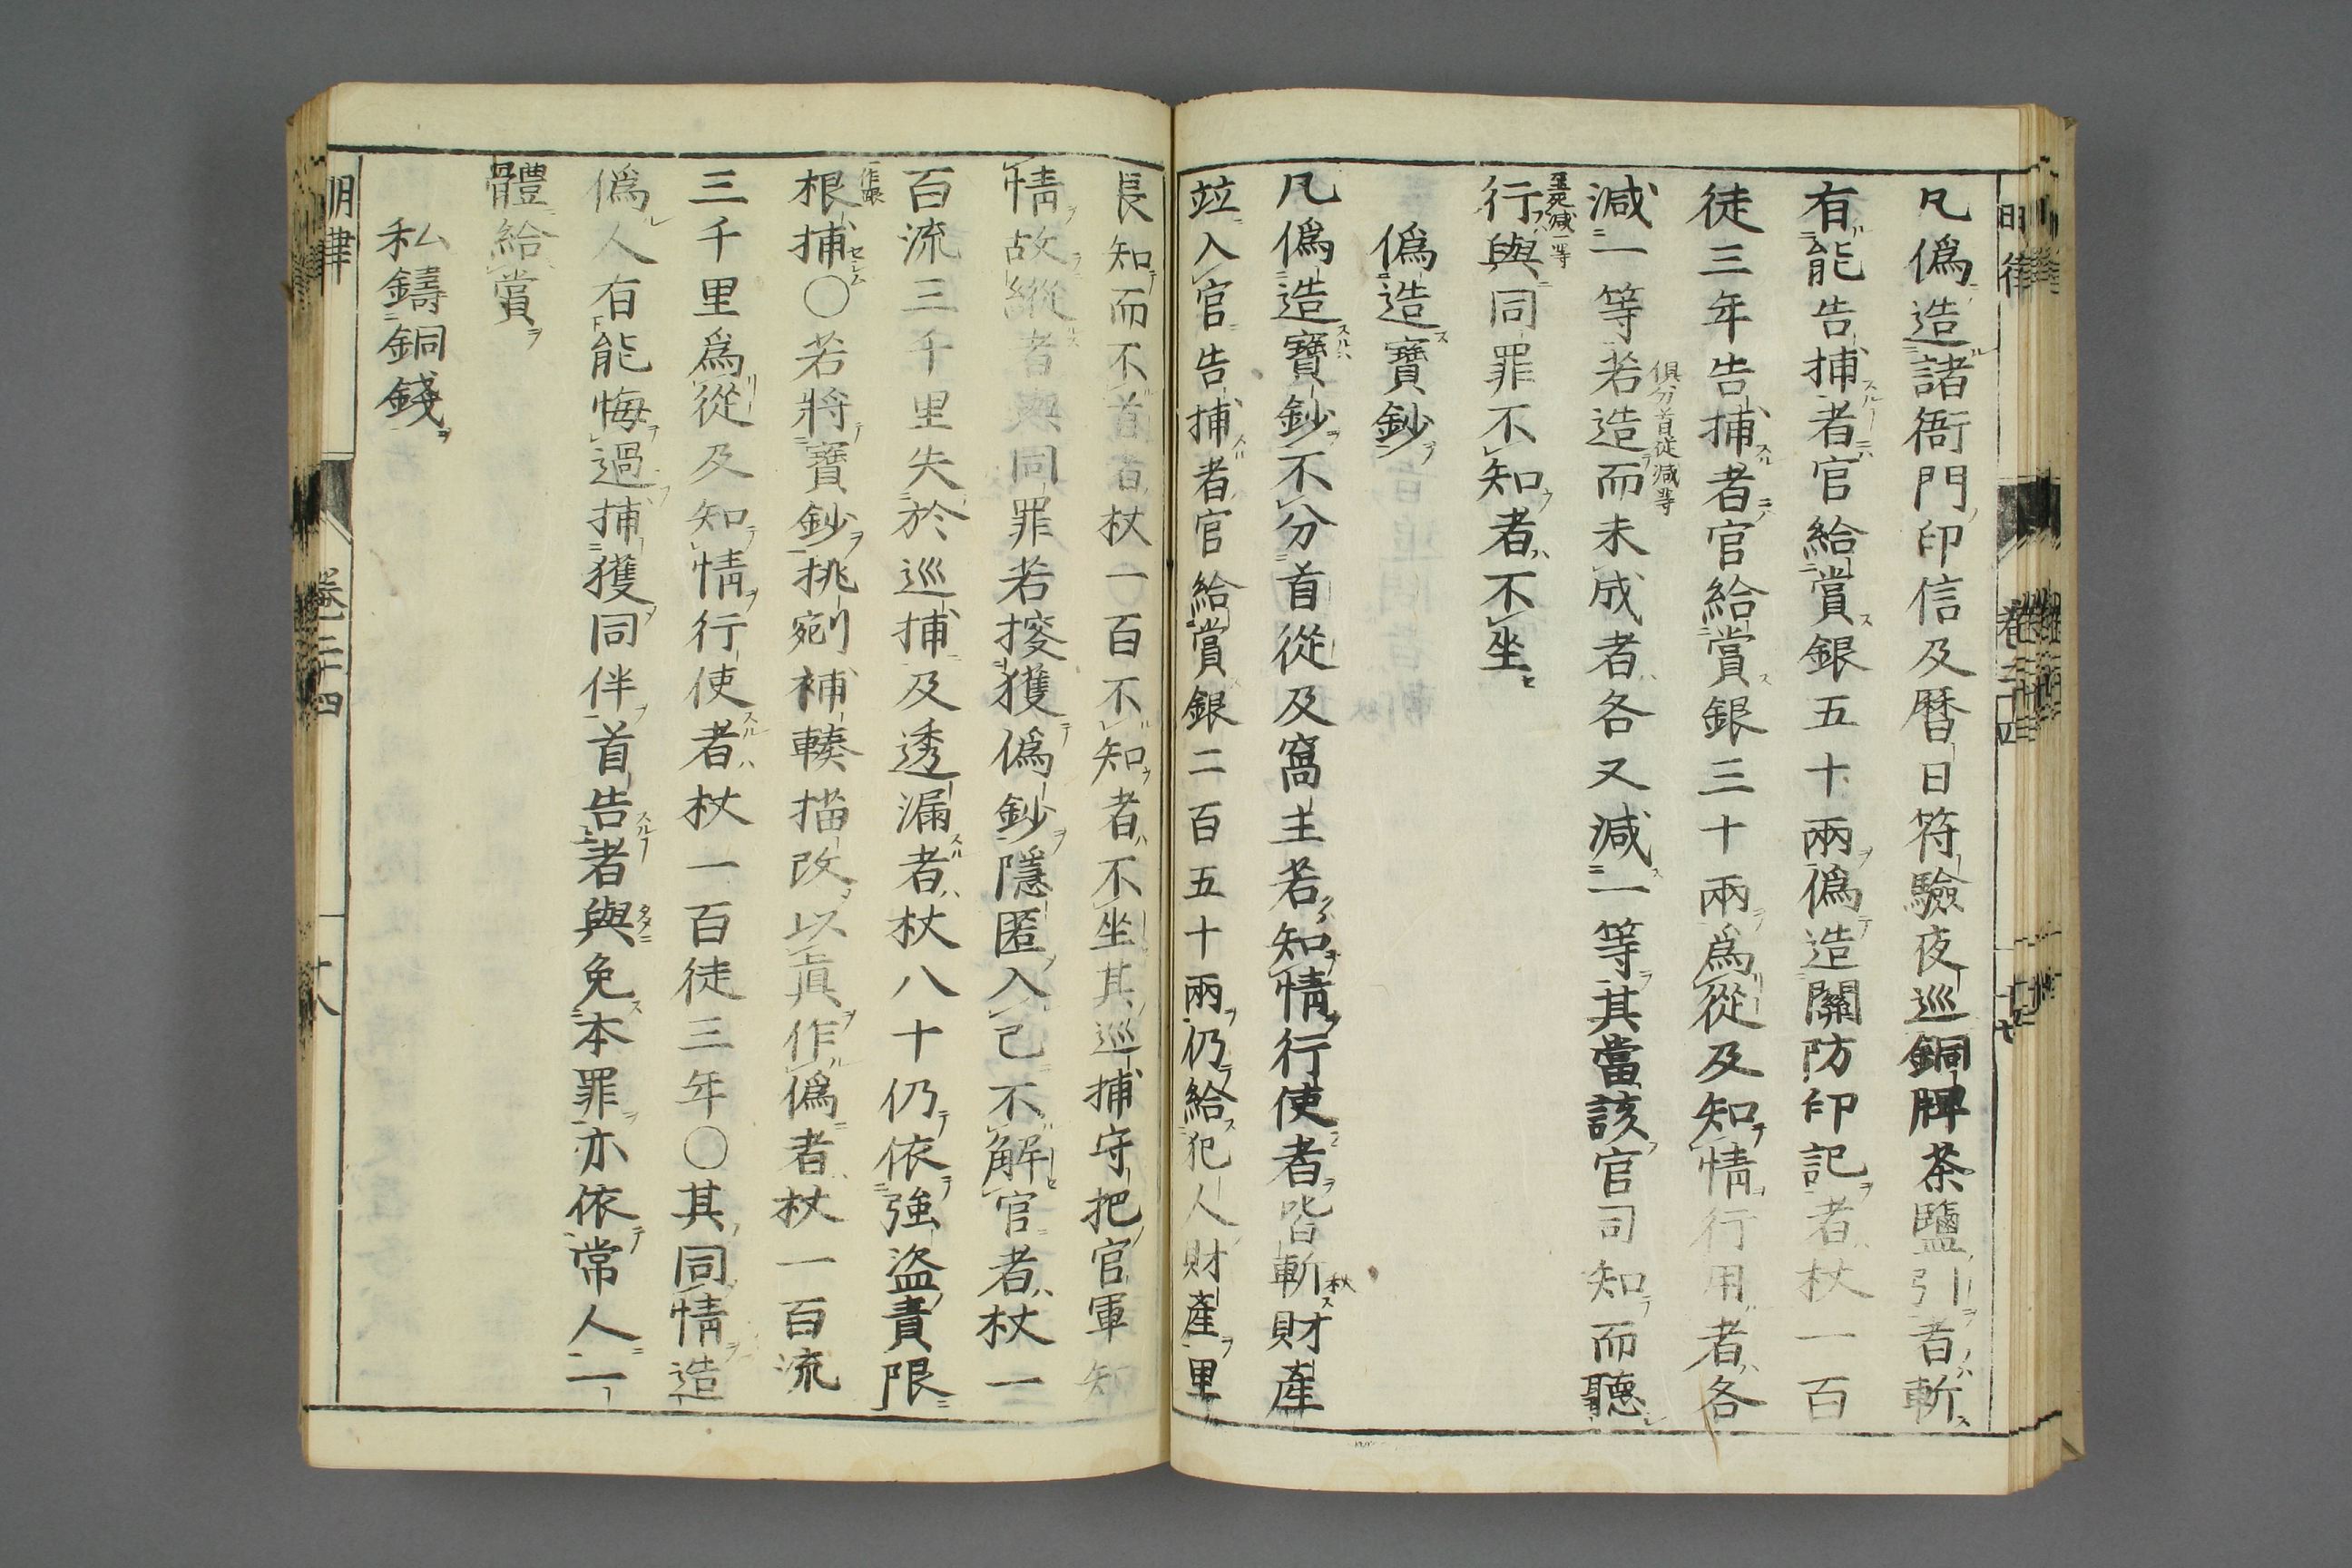 凡僞造諸衙門印信及曆日符驗夜巡銅牌茶鹽引者斬
有能告捕者官給賞銀五十兩僞造關防印記者杖一百
徒三年告捕者官給賞銀三十兩爲從及知情行用者各
減一等若造而未成者各又減一等其當該官司知而聽
俱分首從減等
行與同罪不知者不坐
至死減一等
僞造寶鈔
凡僞造寶鈔不分首從及窩主若知情行使者皆斬財產
秋
竝入官告捕者官給賞銀二百五十兩仍給犯人財產里
長知而不首者杖一百不知者不坐其巡捕守把官軍知
情故縱者與同罪若搜獲僞鈔隱匿入己不解官者杖一
百流三千里失於巡捕及透漏者杖八十仍依強盜責限
根捕〇若將寶鈔挑剜補輳描改以眞作僞者杖一百流
一作跟
三千里爲從及知情行使者杖一百徒三年〇其同情造
僞人有能悔過捕獲同伴首告者與免本罪亦依常人一
體給賞
私鑄銅錢
明律
卷二十四
十八